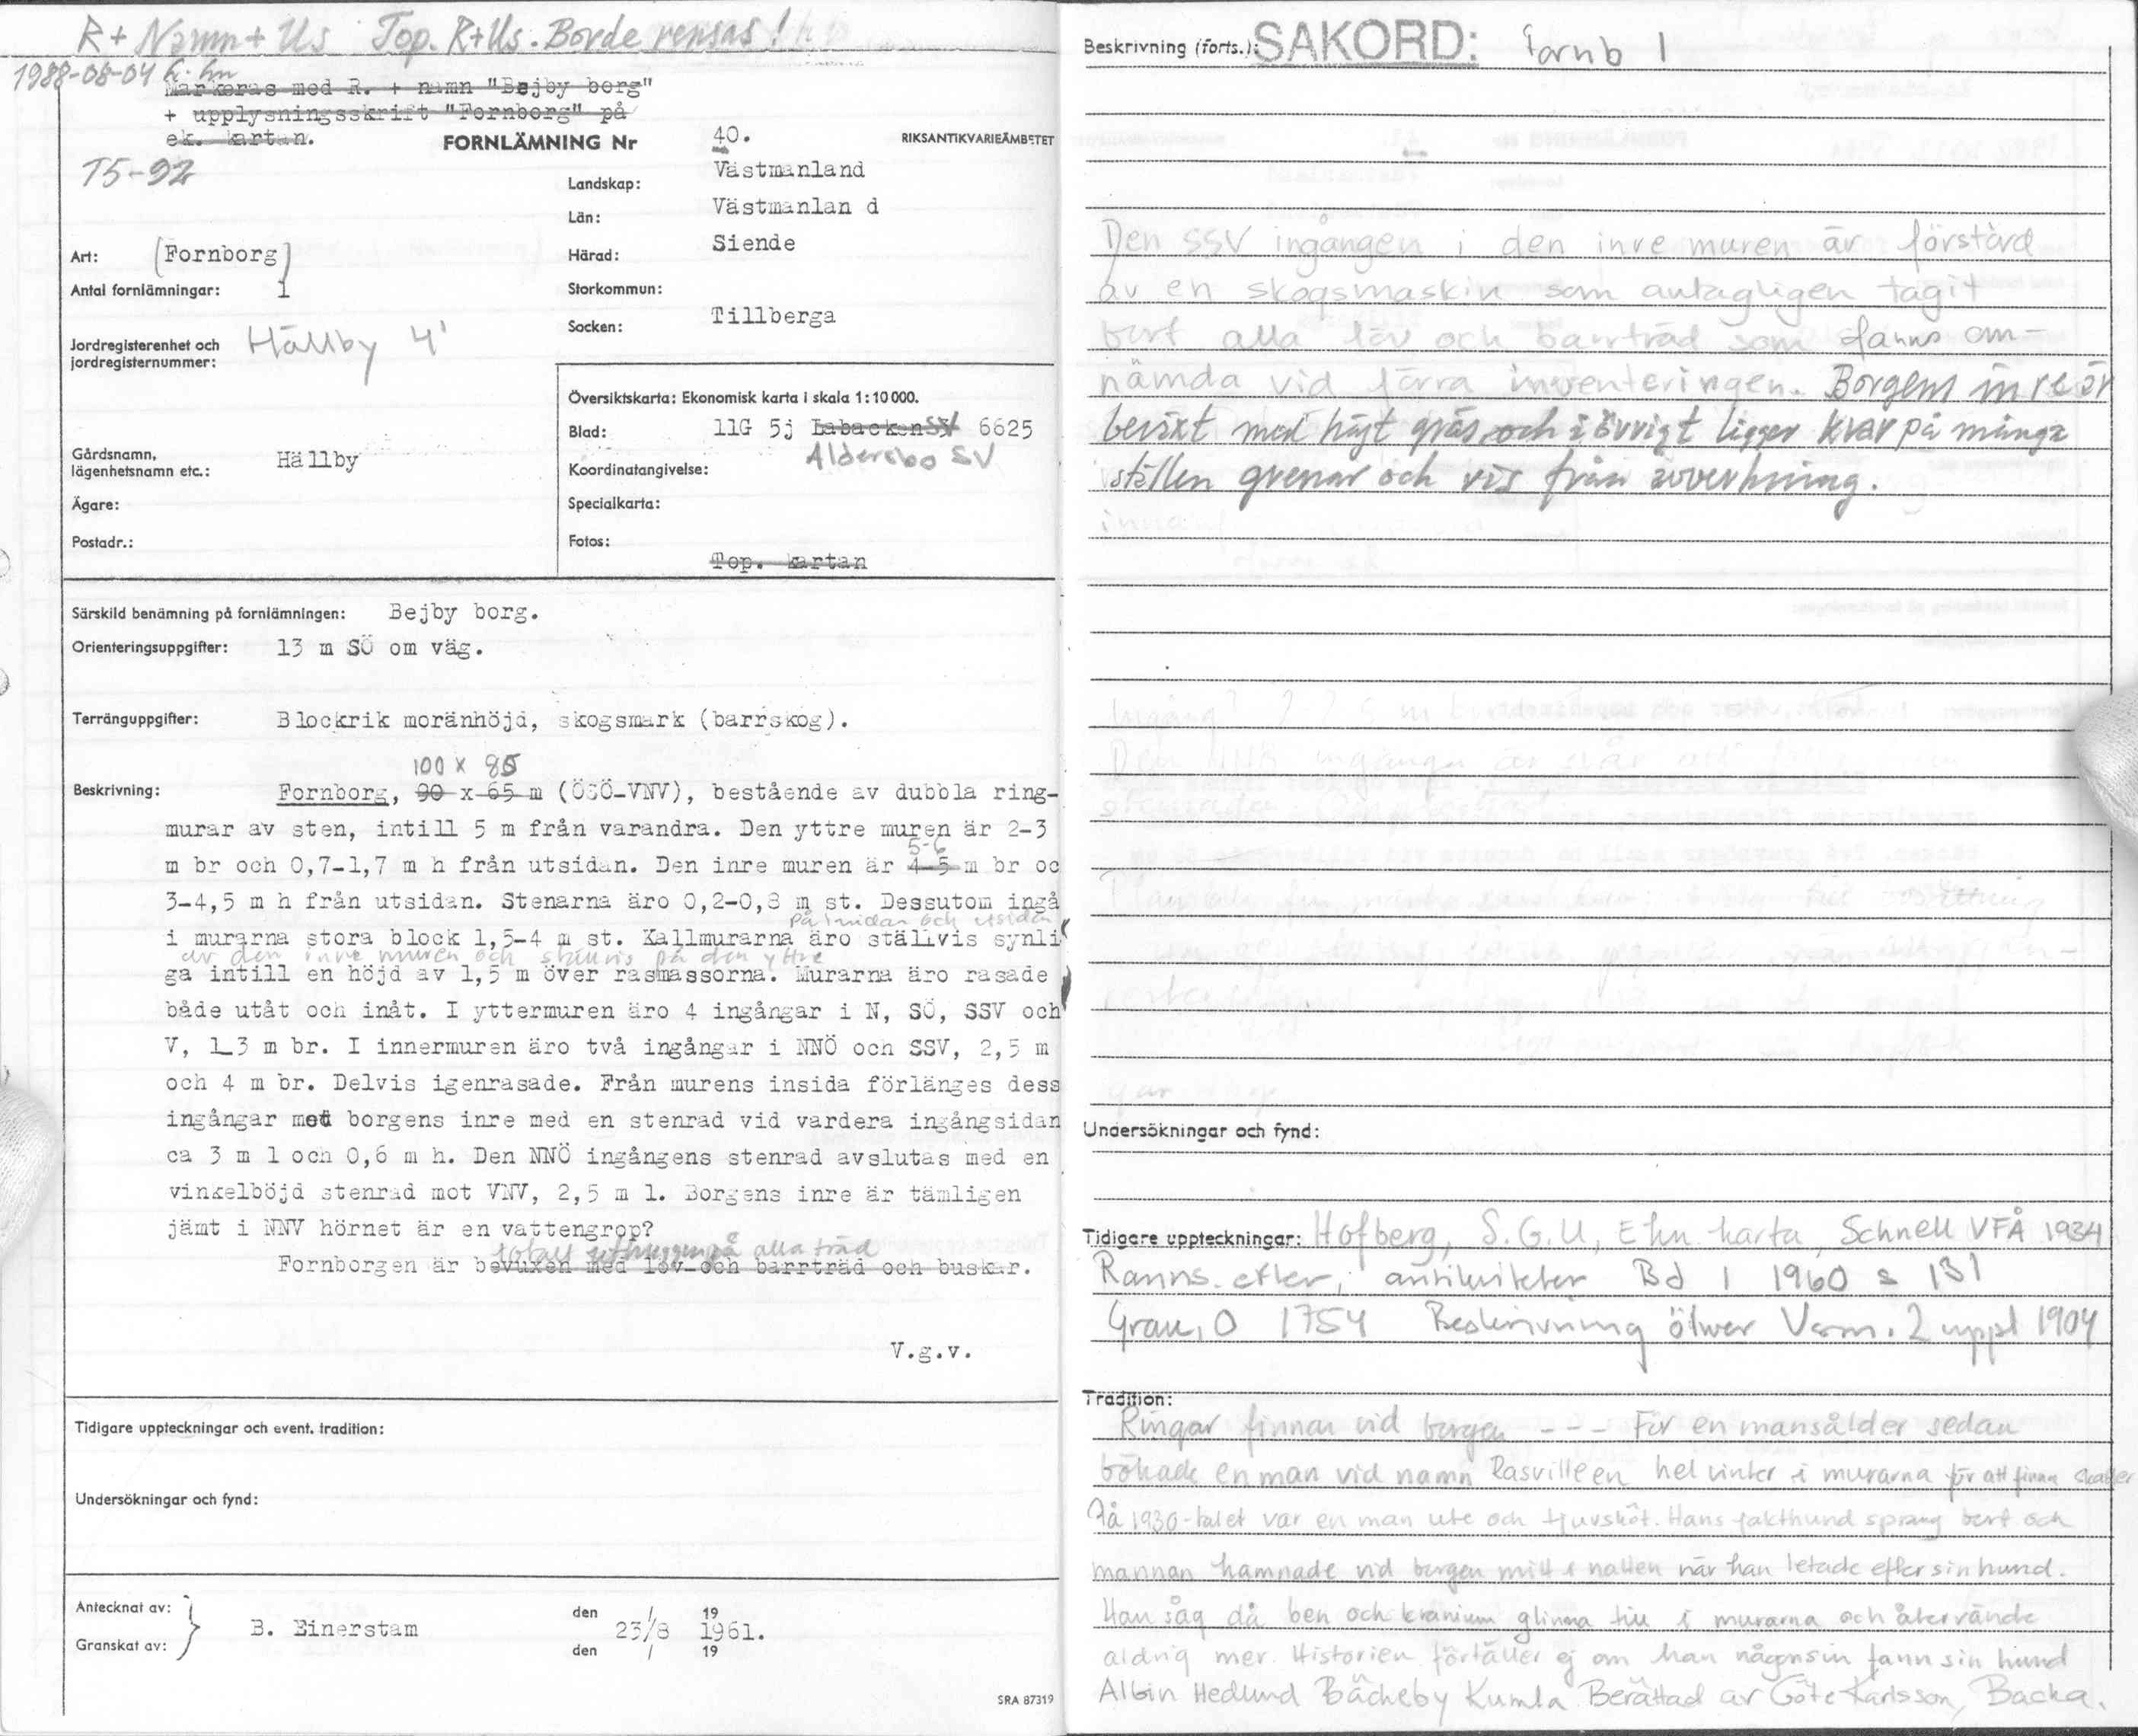 R + Namn + Us Top. R+Us. Borde rensas!
1988-08-04
Markeras med R. + namn "Bejby borg"
+ upplysningsskrift "Fornborg" på
ek. kartan.
FORNLÄMNING Nr 40.
RIKSANTIKVARIEÄMBETET
T5-92
Landskap: Västmanland
Län: Västmanlan d
Art: (Fornborg)
Härad: Siende
Antal fornlämningar: 1
Storkommun:
Socken: Tillberga
Jordregisterenhet och
jordregisternummer: Hällby 4¹
Översiktskarta: Ekonomisk karta i skala 1:10 000.
Blad: 11G 5j Labacken SV 6625
Äldersbo SV
Gårdsnamn,
lägenhetsnamn etc.: Hällby
Koordinatangivelse:
Ägare:
Specialkarta:
Postadr.:
Fotos:
Top. kartan
Särskild benämning på fornlämningen: Bejby borg.
Orienteringsuppgifter: 13 m SÖ om väg.
Terränguppgifter: Blockrik moränhöjd, skogsmark (barrskog).
100 x 85
Beskrivning: Fornborg, 90 x 65 m (ÖSÖ-VNV), bestående av dubbla ring-
murar av sten, intill 5 m från varandra. Den yttre muren är 2-3
5-6
m br och 0,7-1,7 m h från utsidan. Den inre muren är 4-5 m br oc
3-4,5 m h från utsidan. Stenarna äro 0,2-0,8 m st. Dessutom ingå
på insidan och utsidan
i murarna stora block 1,5-4 m st. Kallmurarna äro ställvis synli
av den inre muren och ställvis på den yttre
ga intill en höjd av 1,5 m över rasmassorna. Murarna äro rasade
både utåt och inåt. I yttermuren äro 4 ingångar i N, SÖ, SSV och
V, 1-3 m br. I innermuren äro två ingångar i NNÖ och SSV, 2,5 m
och 4 m br. Delvis igenrasade. Från murens insida förlänges dess
ingångar mot borgens inre med en stenrad vid vardera ingångsidan
ca 3 m l och 0,6 m h. Den NNÖ ingångens stenrad avslutas med en
vinkelböjd stenrad mot VNV, 2,5 m l. Borgens inre är tämligen
jämt i NNV hörnet är en vattengrop?
totalt uthuggen på alla träd
Fornborgen är bevuxen med löv-och barrträd och buskar.
V.g.v.
Tidigare uppteckningar och event. tradition:
Undersökningar och fynd:
Antecknat av: B. Einerstam den 23/8 1961.
Granskat av: den / 19
SRA 87319
Beskrivning (forts.): SAKORD: Fornb 1
Den SSV ingången i den inre muren är förstörd
av en skogsmaskin som antagligen tagit
bort alla löv och barrträd som fanns om-
nämda vid förra inventeringen. Borgens inre är
beväxt med högt gräs och i övrigt ligger kvar på många
ställen grenar och ris från avverkning.
Undersökningar och fynd:
Tidigare uppteckningar: Hofberg, S.G.U, Ekn karta, Schnell VFÅ 1934
Ranns. efter antikviteter Bd 1 1960 s 131
Grau, O 1754 Beskrivning öfwer Vsm. 2 uppl 1904
Tradition:
Ringar finnas vid borgen --- För en mansålder sedan
bökade en man vid namn Rasville en hel vinter i murarna för att finna skatter
På 1930-talet var en man ute och tjuvsköt. Hans jakthund sprang bort och
mannan hamnade vid borgen mitt i natten när han letade efter sin hund.
Han såg då ben och kranium glimma till i murarna och återvände
aldrig mer. Historien förtäller ej om han någonsin fann sin hund
Albin Hedlund Bäckeby Kumla Berättad av Göte Karlsson, Backa.